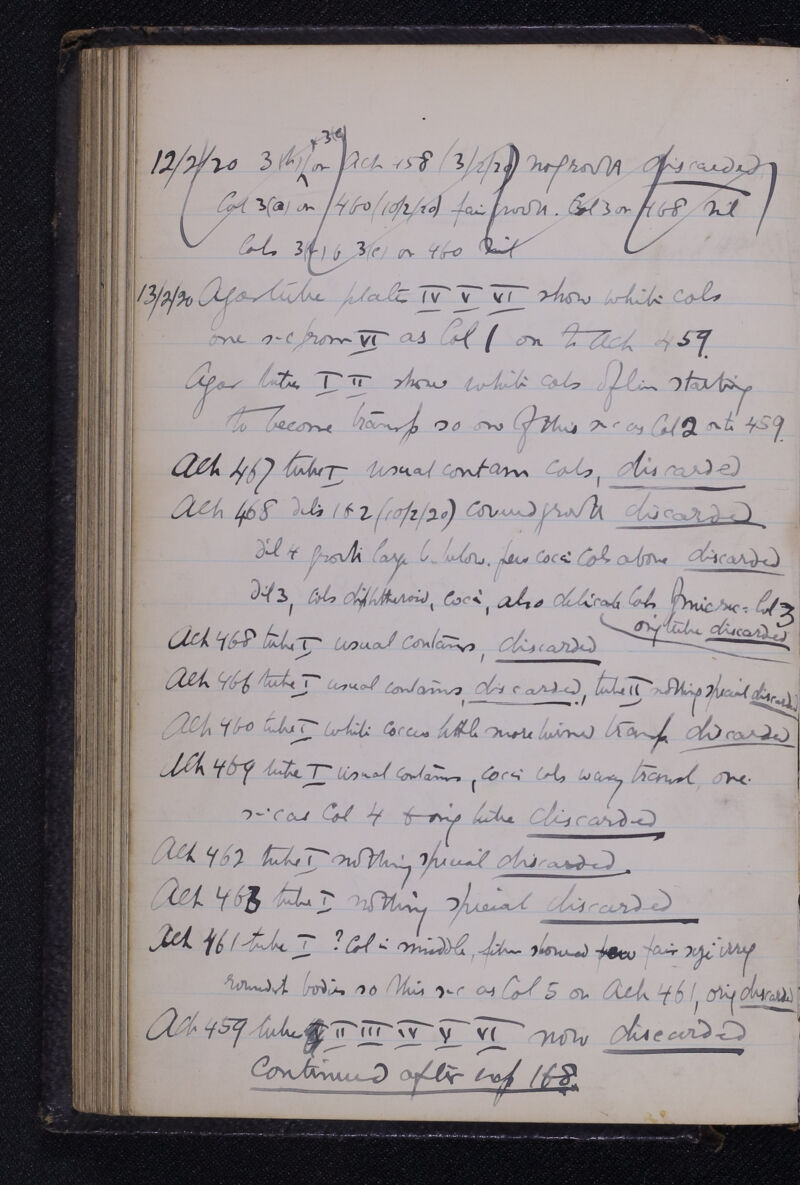 12/2/20 3(b) or 3c on Ach 458 (3/2/20) no growth discarded
Col 3(a) on 460 (10/2/20) fair growth. Col 3 on 468 nil
Cols 3(b) 3(c) on 460 nil
13/2/20 Agar tube plate IV V VI show white cols
one s-c from VI as Col 1 on to Ach 459.
Agar tubes I II show white cols starting
to become transp so one of this s-c as Col 2 onto 459.
Ach 467 tube I usual contam cols, discarded
Ach 468 dils 1 & 2 (10/2/20) growth discarded
Dil 4 growth large b. below. few cocci cols above discarded
Dil 3, cols diphtheroid, cocci, also delicate cols = Col 3
orig tube discarded
Ach 468 tube I usual contams, discarded
Ach 466 tube I usual contams, discarded, tube II nothing special discarded
Ach 460 tube I white coccus little more transp discarded
Ach 469 tube I usual contams, cocci cols transl, one
s-c as Col 4 & orig tube discarded
Ach 462 tube I nothing special discarded
Ach 463 tube I nothing special discarded
Ach 461 tube I ? Col in middle, film showed few fair size irreg
roundish bodies so this s-c as Col 5 on Ach 461, orig discarded
Ach 459 tube II III IV V VI now discarded
Continued after 168.